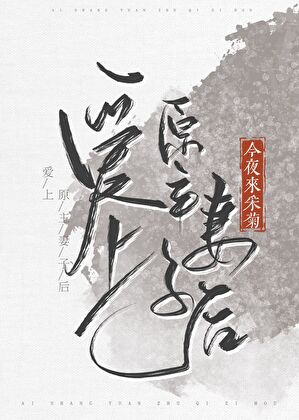 AI SHANG YUAN ZHU QI ZI HOU
爱上
原主妻子后
今夜來采菊
爱/上
原/主/妻/子/后
AI SHANG YUAN ZHU QI ZI HOU